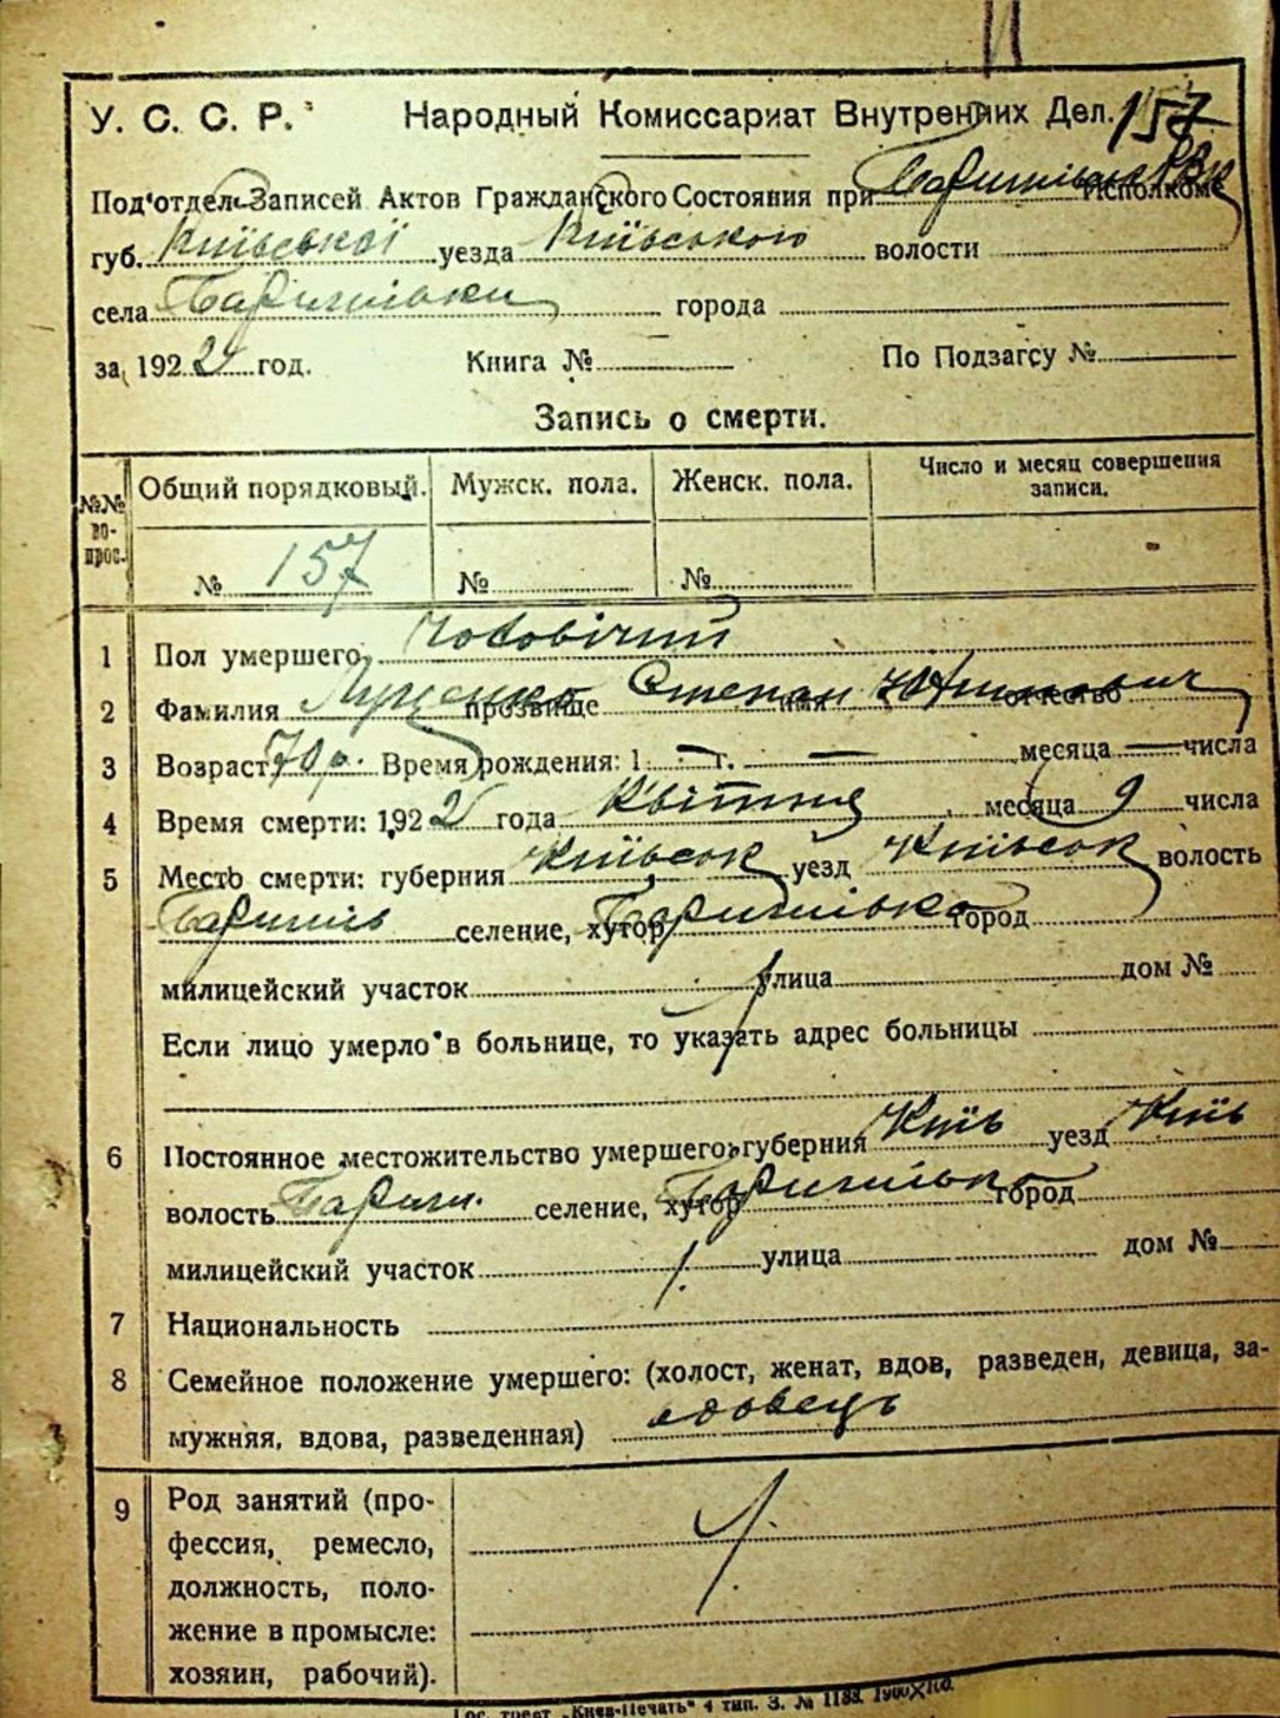 У. С. С. Р. Народный Комиссариат Внутренних Дел. 157
Под'отдел Записей Актов Гражданского Состояния при Баришівськ. РВК Исполкоме
губ. Київської уезда Київського волости
села Баришівки города
за 192 год. Книга № По Подзагсу №
Запись о смерти.
№№ вопрос. Общий порядковый. Мужск. пола. Женск. пола. Число и месяц совершения записи.
№ 157 № №
1 Пол умершего Чоловічий
2 Фамилия Луценко прозвище Степан имя отчество
3 Возраст 70 р. Время рождения: 1 — г. — месяца — числа
4 Время смерти: 192 года Квітня месяца 9 числа
5 Место смерти: губерния Київськ уезд Київськ волость
Баришів селение, хутор Баришівка город
милицейский участок улица дом №
Если лицо умерло в больнице, то указать адрес больницы
6 Постоянное местожительство умершего: губерния Київ уезд Київ
волость Бариш. селение, хутор Баришівка город
милицейский участок улица дом №
7 Национальность
8 Семейное положение умершего: (холост, женат, вдов, разведен, девица, за-
мужняя, вдова, разведенная) вдовець
9 Род занятий (про-
фессия, ремесло,
должность, поло-
жение в промысле:
хозяин, рабочий).
Гос. трест „Киев-Печать“ 4 тип. З. № 1188. 1900×100.